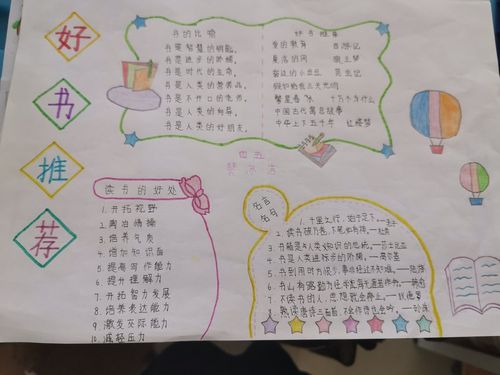 好
书
推
荐
书的比喻
书是智慧的钥匙。
书是进步的阶梯。
书是时代的生命。
书是人类的营养品。
书是不开口的老师。
书是人类的向导。
书是人类的好朋友。
好书推荐
爱的教育 西游记
夏洛的网 狼王梦
窗边的小豆豆 昆虫记
假如给我三天光明
繁星春水 十万个为什么
中国古代寓言故事
中华上下五千年 红楼梦
四五
读书的好处
1.开拓视野
2.陶冶情操
3.培养气质
4.增加知识面
5.提高写作能力
6.提升理解力
7.开拓智力发展
8.培养表达能力
9.激发交际能力
10.减轻压力
名言
名句
1.千里之行,始于足下。——老子
2.读书破万卷,下笔如有神。——杜甫
3.书籍是人类知识的总统。——莎士比亚
4.书是人类进步的阶梯。——高尔基
5.书到用时方恨少,事非经过不知难。——陆游
6.书山有路勤为径,学海无涯苦作舟。——韩愈
7.不读书的人,思想就会停止。——狄德罗
8.熟读唐诗三百首,不会作诗也会吟。——孙洙